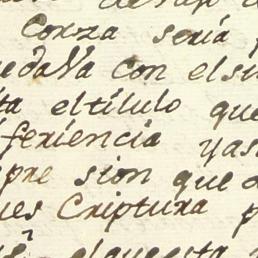 conza seria
edava con el su
ta el titulo que
feriencia yas
pre sion que
ues Criptura p